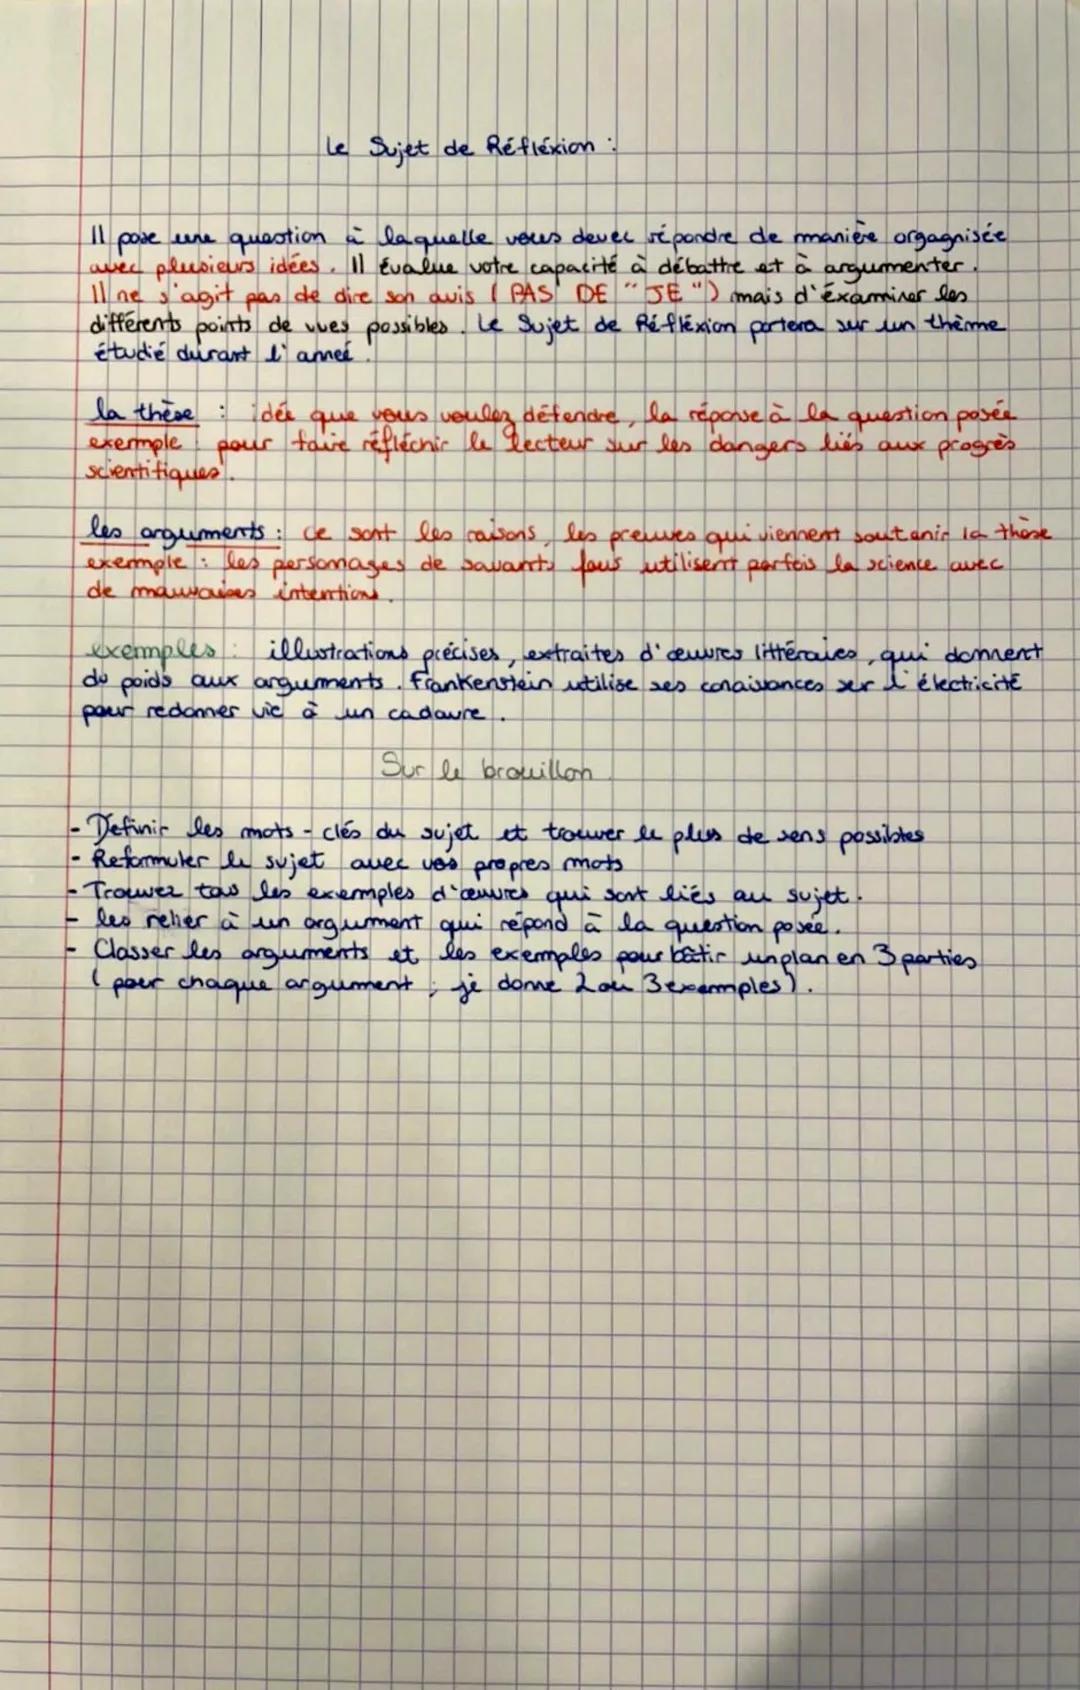 Le Sujet de Réfléxion :
Il pose une question à laquelle vous devez répondre de manière orgagnisée
avec plusieurs idées. Il évalue votre capacité à débattre et à argumenter.
Il ne s'agit pas de dire son avis ( PAS DE "JE") mais d'éxaminer les
différents points de vues possibles. Le Sujet de Réfléxion portera sur un thème
étudié durant l'anneé.
la thèse : idée que vous voulez défendre, la réponse à la question posée
exemple : pour faire réfléchir le lecteur sur les dangers liés aux progrès
scientifiques.
les arguments : ce sont les raisons, les preuves qui viennent soutenir la thèse
exemple : les personages de savants fous utilisent parfois la science avec
de mauvaises intentions.
exemples : illustrations précises, extraites d'œuvres littéraires, qui donnent
du poids aux arguments. Frankenstein utilise ses conaissances sur l'électricité
pour redonner vie à un cadavre.
Sur le brouillon
- Définir les mots-clés du sujet et trouver le plus de sens possibles
- Reformuler le sujet avec vos propres mots
- Trouver tous les exemples d'œuvres qui sont liés au sujet.
- les relier à un argument qui répond à la question posée.
- Classer les arguments et les exemples pour bâtir un plan en 3 parties
( pour chaque argument ; je donne 2 ou 3 exemples).